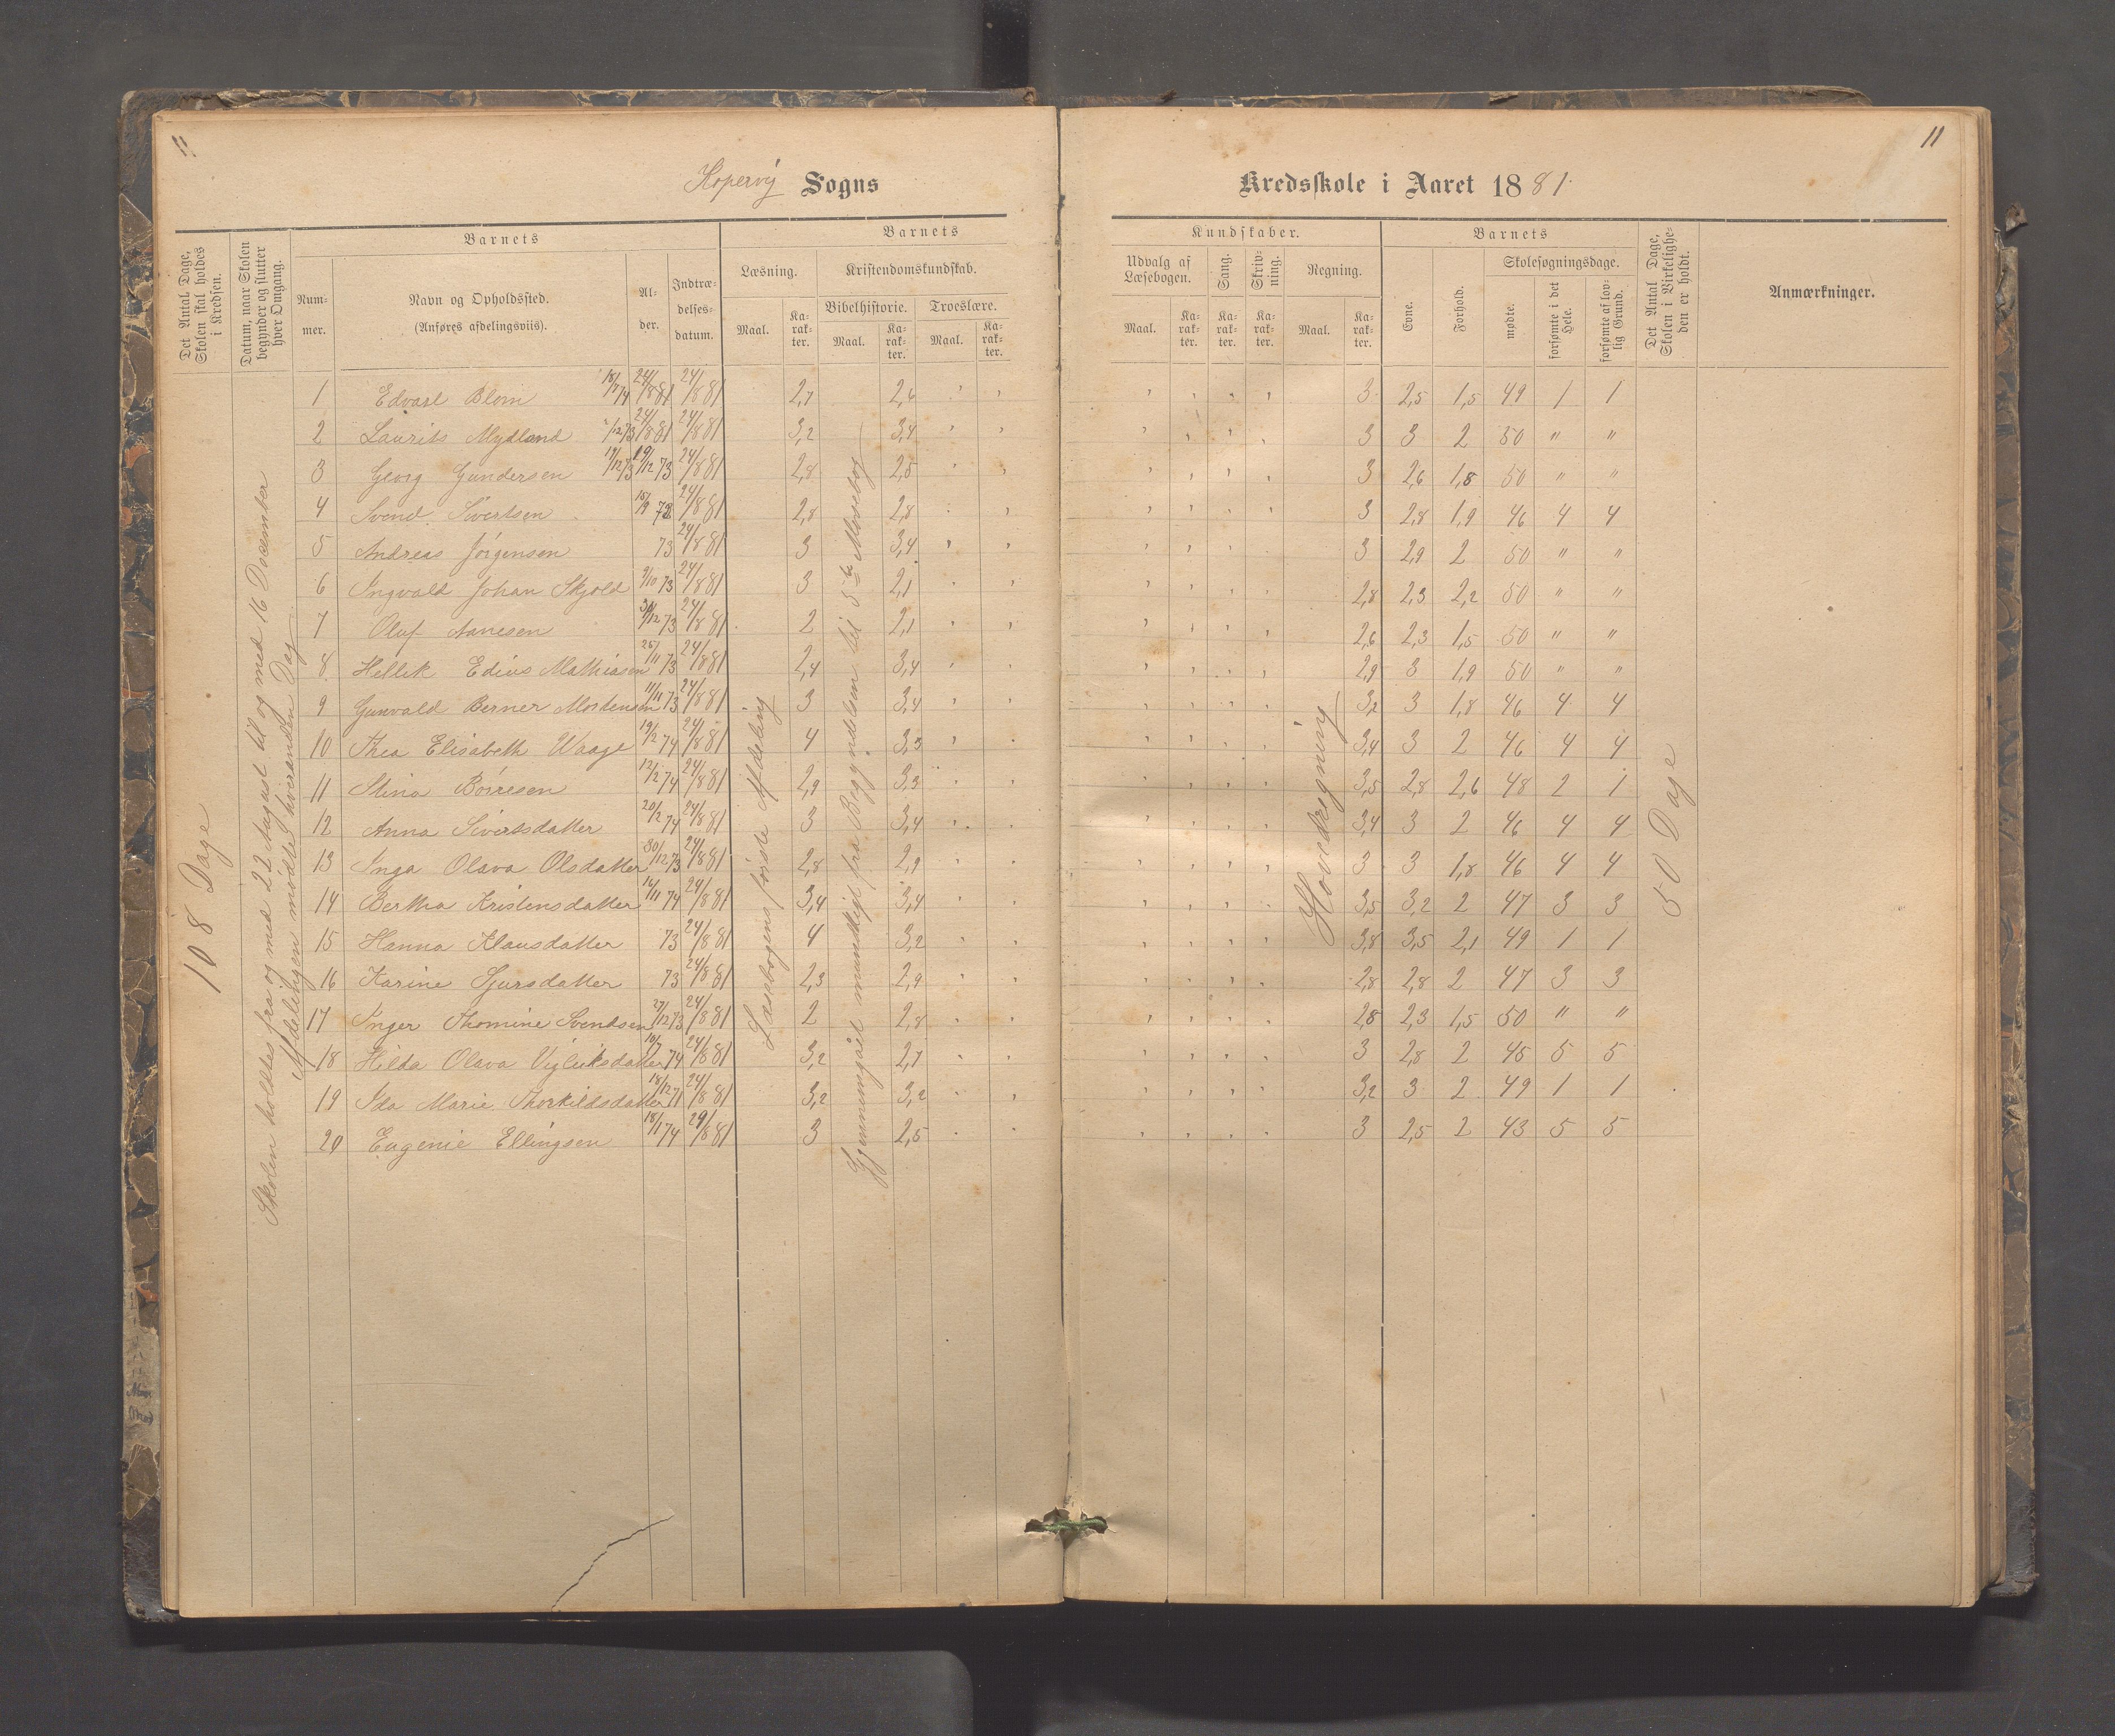 11
11
Kopervig Sogns Kredsskole i Aaret 1881.
Det Antal Dage, Skolen skal holdes i Kredsen.
Datum, naar Skolen begynder og slutter hver Omgang.
Barnets
Barnets
Kundskaber.
Barnets
Det Antal Dage, Skolen i Virkeligheden er holdt.
Anmærkninger.
Nummer.
Navn og Opholdssted.
(Anføres afdelingsviis).
Alder.
Indtrædelsesdatum.
Læsning.
Kristendomskundskab.
Bibelhistorie.
Troeslære.
Udvalg af Læsebogen.
Sang.
Skrivning.
Regning.
Evne.
Forhold.
Skolesøgningsdage.
mødte.
forsømte i det Hele.
forsømte af lovlig Grund.
Maal. Karakter. Maal. Karakter. Maal. Karakter. Maal. Karakter. Karakter. Karakter. Maal. Karakter.
108 Dage
Skolen holdes fra og med 22 August til og med 16 December
Afdelingen mødte hveranden Dag
Læsebogens første Afdeling
Gjennemgaaet mundtligt fra Begyndelsen til 5te Mosebog
Hovedregning
50 Dage
1 Edvard Blom 24/8 81 24/8 81 2,7 2,6 3 2,5 1,5 49 1 1
2 Laurits Mydland 24/8 81 24/8 81 3,2 3,4 3 3 2 50 " "
3 Georg Gundersen 19/12 73 19/12 73 24/8 81 2,8 2,5 3 2,6 1,8 50 " "
4 Svend Sivertsen 24/8 81 2,8 2,8 3 2,8 1,9 46 4 4
5 Andreas Jörgensen 73 24/8 81 3 3,4 3 2,9 2 50 " "
6 Ingvald Johan Skjold 9/10 73 24/8 81 3 2,1 2,8 2,3 2,2 50 " "
7 Oluf Aanesen 73 24/8 81 2 2,1 2,6 2,3 1,5 50 " "
8 Hellik Edius Mathiasen 25/11 73 24/8 81 2,4 3,4 2,9 3 1,9 50 " "
9 Gunvald Berner Mortensen 11/11 73 24/8 81 3 3,4 3,2 3 1,8 46 4 4
10 Thea Elisabeth Waage 19/2 74 24/8 81 4 3,3 3,4 3 2 46 4 4
11 Stina Börresen 12/2 74 24/8 81 2,9 3,3 3,5 2,8 2,6 48 2 1
12 Anna Sivertsdatter 20/2 74 24/8 81 3 3,4 3,4 3 2 46 4 4
13 Inga Olava Olsdatter 30/12 73 24/8 81 2,8 2,9 3 3 1,8 46 4 4
14 Bertha Kristensdatter 16/11 74 24/8 81 3,4 3,4 3,5 3,2 2 47 3 3
15 Hanna Klausdatter 73 24/8 81 4 3,2 3,8 3,5 2,1 49 1 1
16 Karine Sjursdatter 73 24/8 81 2,3 2,9 2,8 2,8 2 47 3 3
17 Inger Thomine Svendsen 27/12 73 24/8 81 2 2,8 2,8 2,3 1,5 50 " "
18 Hilda Olava Vigleiksdatter 10/7 74 24/8 81 3,2 2,7 3 2,8 2 45 5 5
19 Ida Marie Thorkildsdatter 18/12 71 24/8 81 3,2 3,2 3,2 3 2 49 1 1
20 Eugenie Ellingsen 18/1 74 29/8 81 3 2,5 3 2,5 2 43 5 5